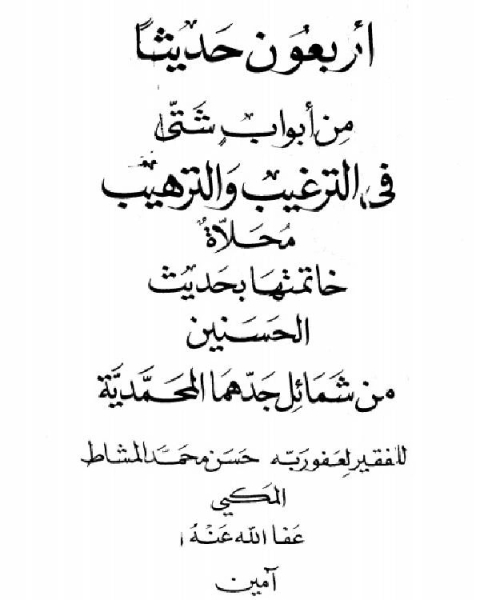 أربعون حديثا
من أبواب شتى
في الترغيب والترهيب
محلاة
خاتمتها بحديث
الحسنين
من شمائل جدهما المحمدية
للفقير لعفو ربه حسن محمد المشاط
المكي
عفا الله عنه
آمين